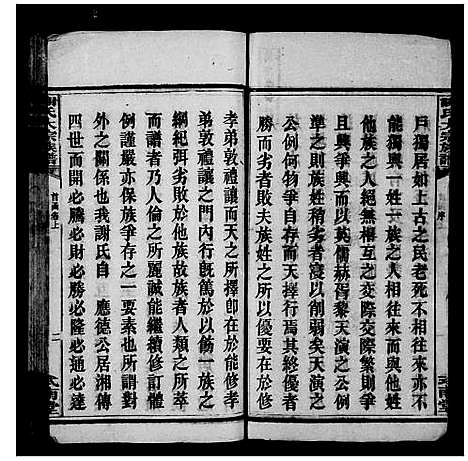 戶獨居如上古之民老死不相往來亦不
能獨與一族之人相往來而與他
族之人絕無相交之交際交際繁則爭
且興爭興而以莫儒赫胥黎天演之公例
準之則族姓稍劣者寖以削弱矣天演之
公例何物爭自存而天擇行焉其終
勝而劣者敗夫族姓之所以優在於修
孝弟敦禮讓而天之所擇卽在於能修孝
弟敦禮讓之門內行旣篤於以飭一族之
綱紀弭劣敗於他族故族者人類之所萃
而譜者乃人倫之所麗誠能繼續修訂體
例謹嚴亦保族爭存之一要素也所謂對
外之關係也我謝氏自 應德公居湘傳
四世而開必勝必財必勝必隆必通必達
謝氏大宗族譜
首卷上
二
序